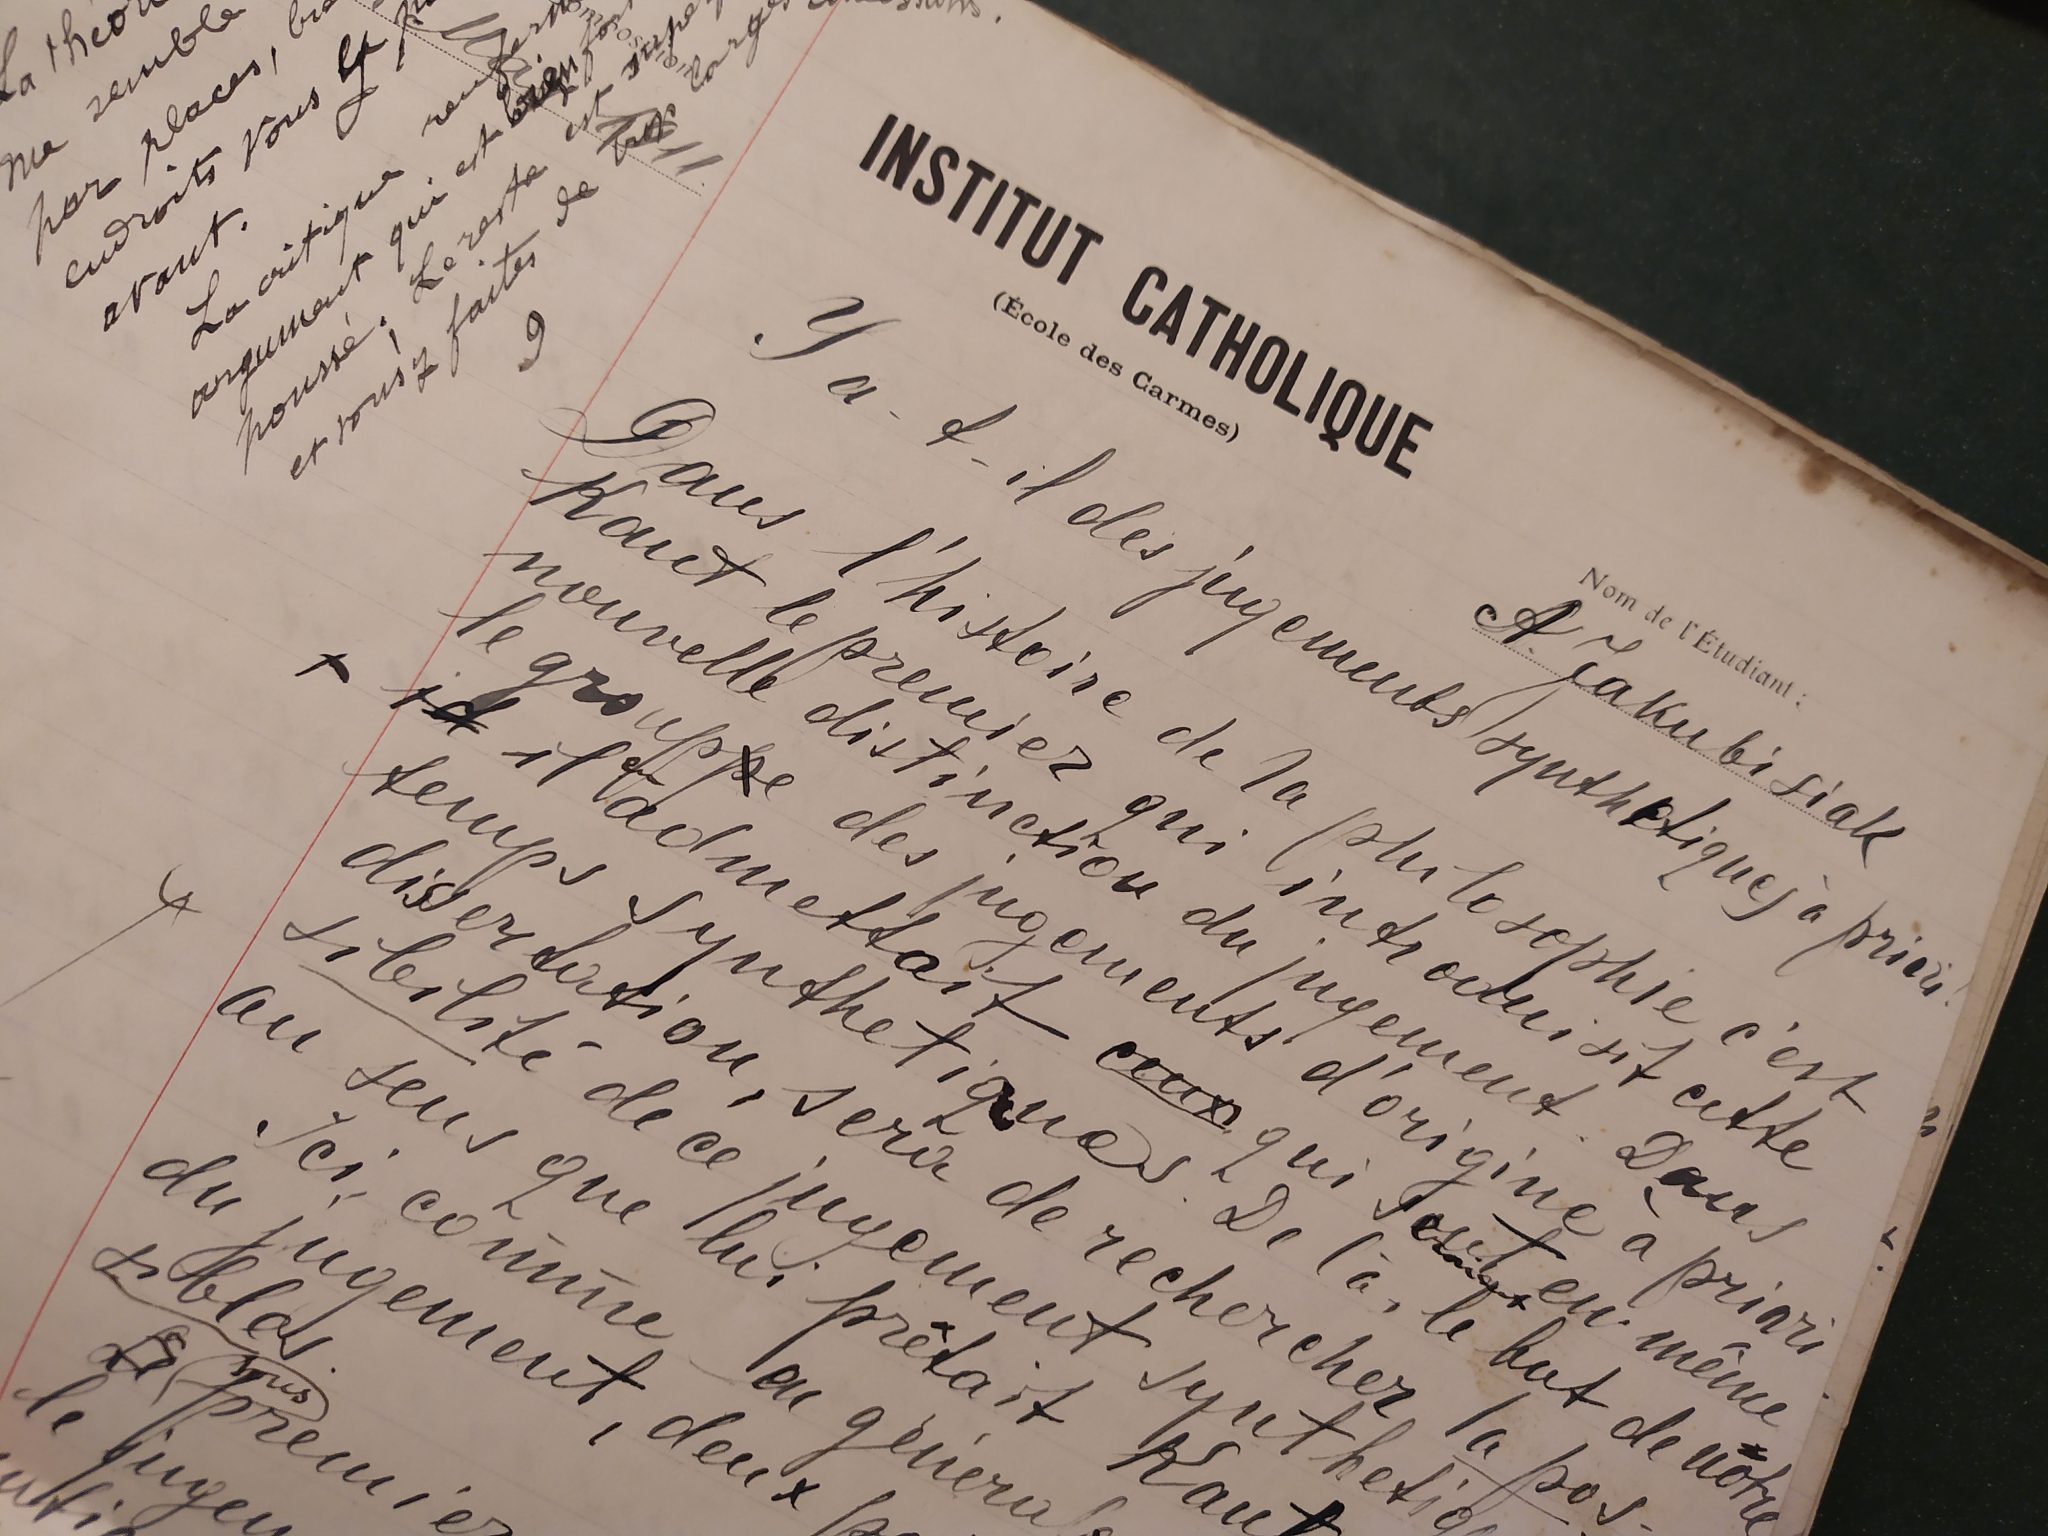 La théor
me semble
par places,
endroits vous
avant.
La critique
argument qui est bien
poussé. Le reste est
et vous y faites de trop larges
9
1911.
INSTITUT CATHOLIQUE
(École des Carmes)
Nom de l'Étudiant :
A. Jakubisiak
Y a-t-il des jugements synthetiques à priori.
Dans l'histoire de la philosophie c'est
Kant le premier qui introduisit cette
nouvelle distinction du jugement. Dans
le grouppe des jugements d'origine à priori
+ id il en admettait ceux qui sont en même
temps synthetiques. De là, le but de nôtre
dissertation, sera de rechercher la pos-
sibilité de ce jugement synthetiq
au sens que lui prêtait Kant
Ici, comme en général
du jugement, deux
sibles.
sous
premier
le jugem